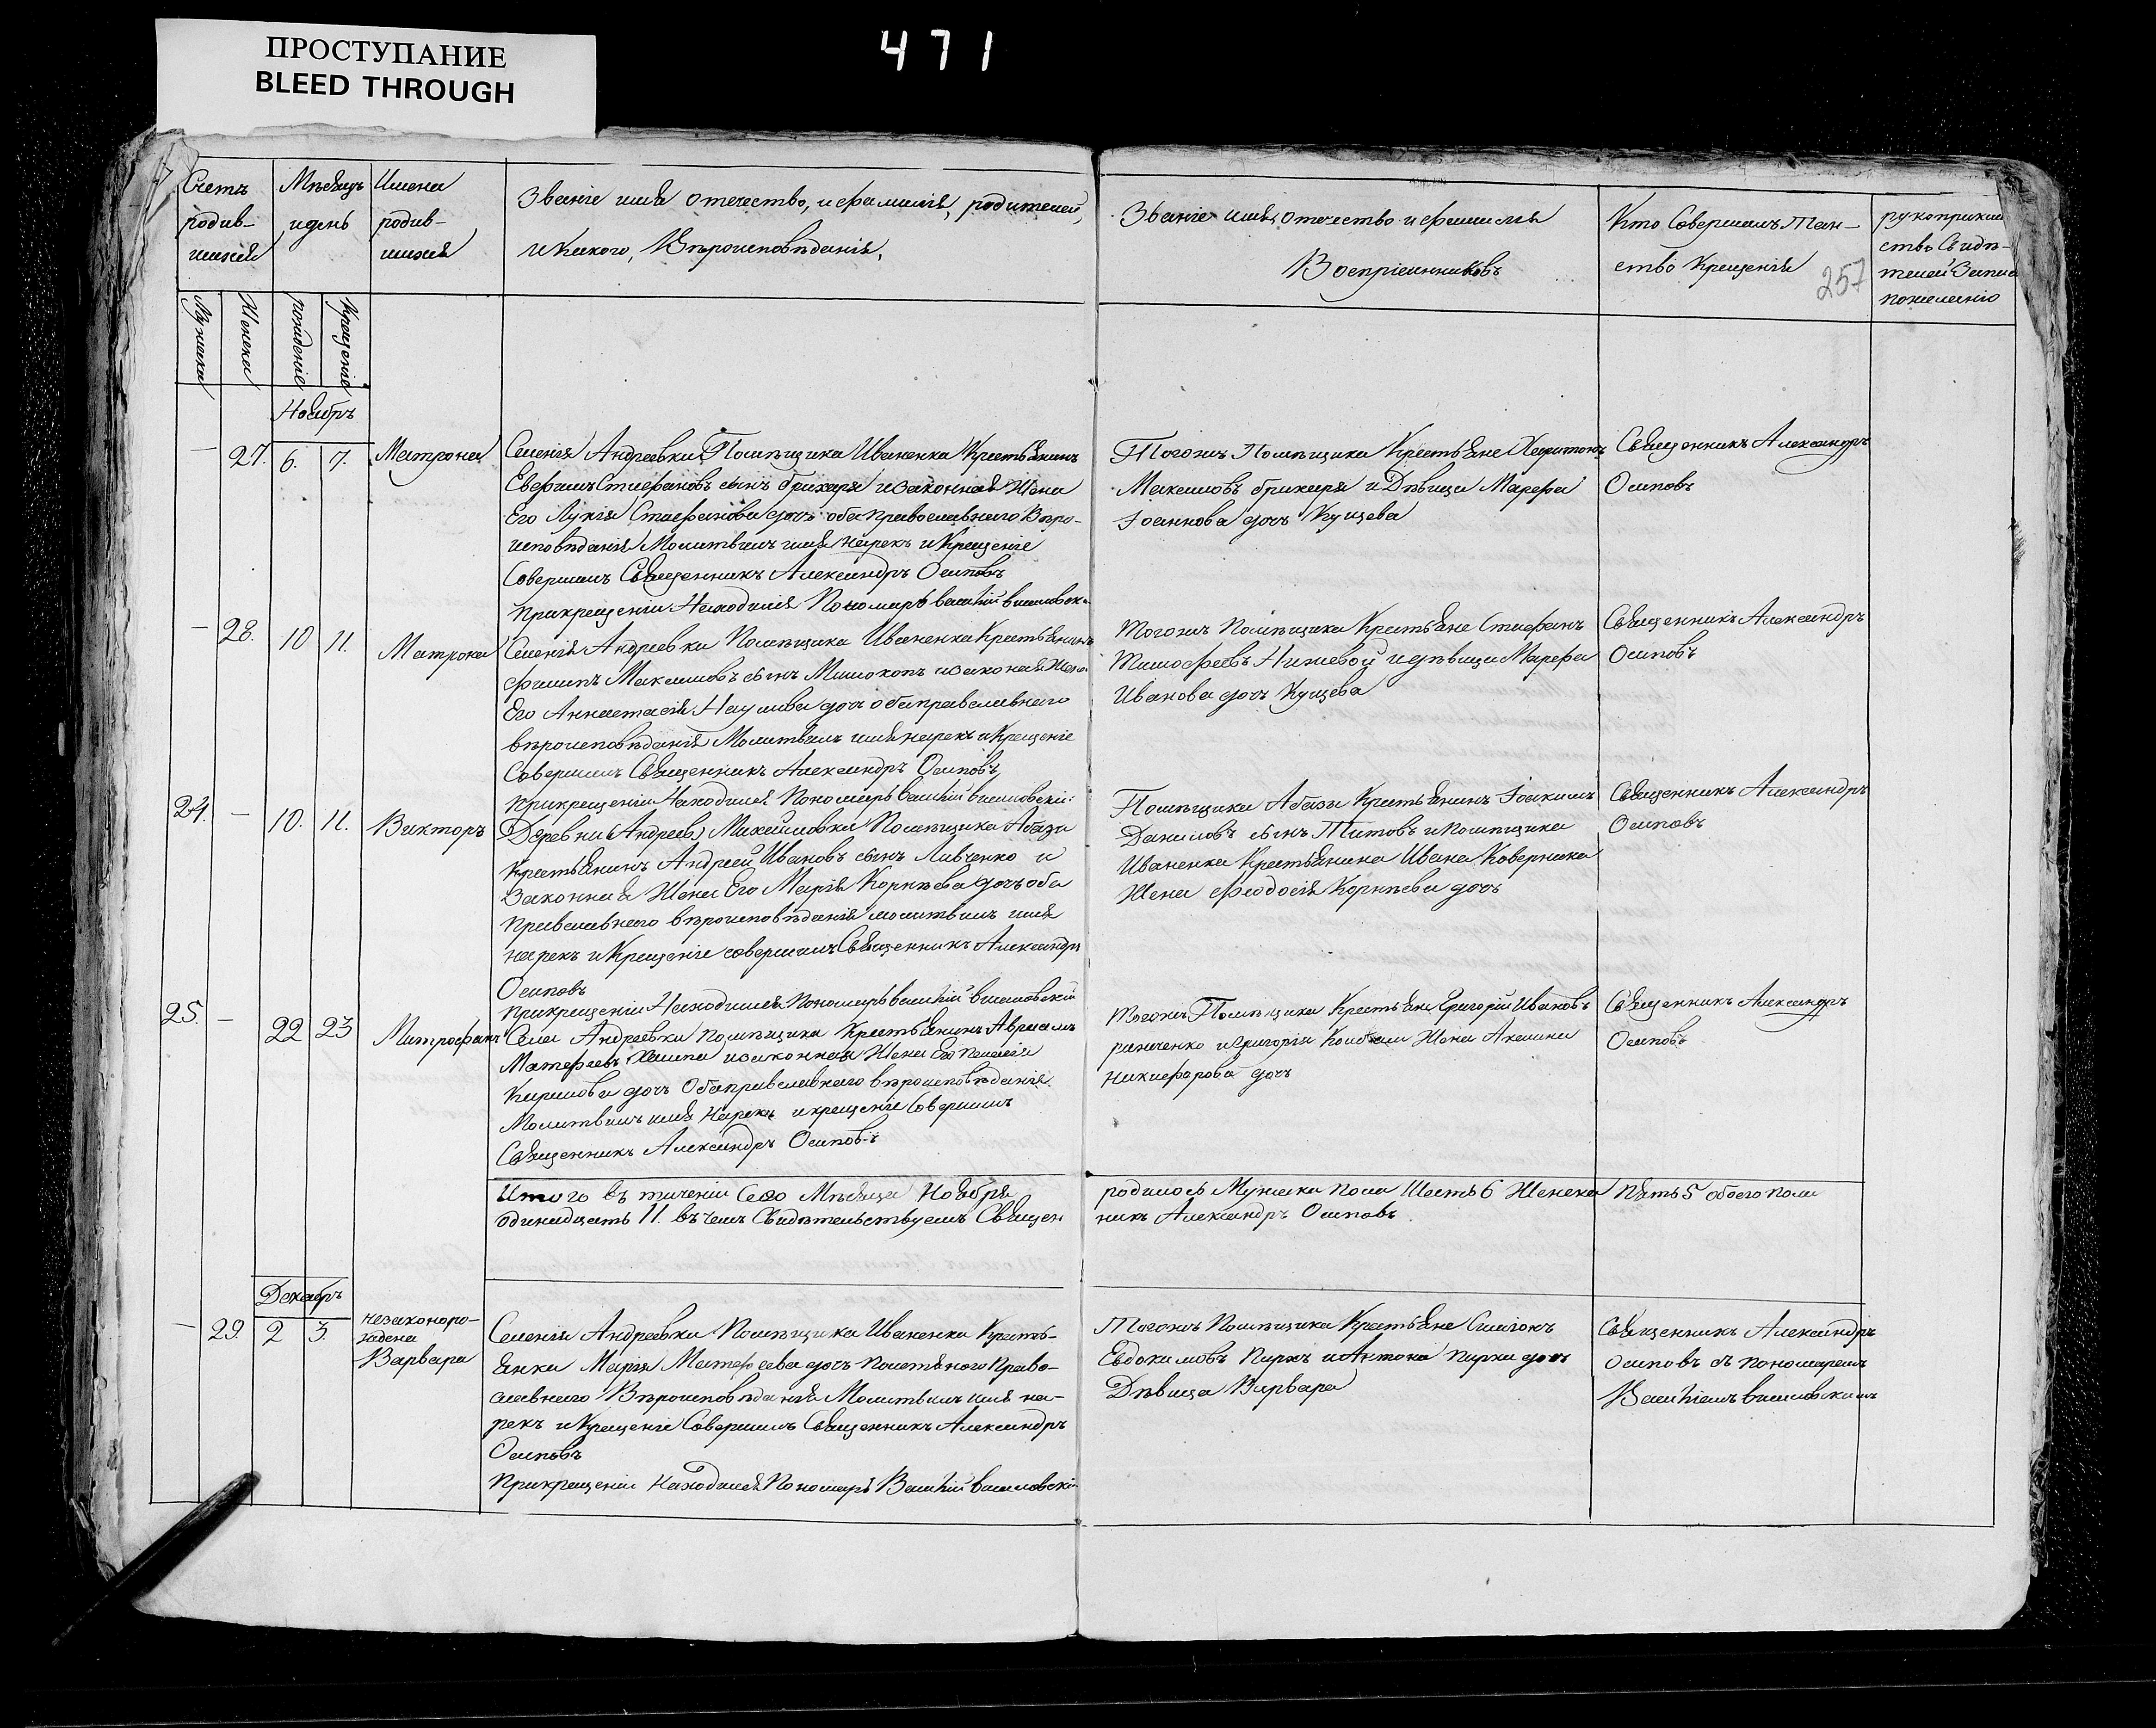 ПРОСТУПАНИЕ
BLEED THROUGH
471
Счетъ родив-шихся
Мѣсяцъ и день
Имена родив-шихся
Званіе имя отечество, и фамилія, родителей,
и какого, Вѣроисповѣданія,
Званіе имя, отечество и фамилія
Воспріемниковъ
Кто Совершалъ Таи-
ство Крещенія
257
рукоприкла
ство Свидѣ-
телей Запис
пожеланію
Мужска
Женска
рожденіе
Крещеніе
Ноябръ
27. 6. 7. Матрона
Селенія Андреевки Помѣщика Иваненка Крестьянинъ
Евфимъ Стефановъ сынъ брихаря и законная Жена
Его Лукія Стефанова дочъ оба православнаго Вѣро-
исповѣданія Молитвилъ имя нарекъ и Крещеніе
Совершилъ Священникъ Александръ Осиповъ
при крещеніи Находился Пономарь василій василовск
Тогожъ Помѣщика Крестьяне Харитонъ
Максимовъ брихаря и Дѣвица Марфа
Іоаннова дочъ Кущева
Священникъ Александръ
Осиповъ
28. 10 11. Матрона
Селенія Андреевки Помѣщика Иваненка Крестьянинъ
филипъ Максимовъ сынъ Мишокопъ изаконая Жена
Его Аннастасія Наумова дочъ оба православнаго
вѣроисповѣданія Молитвилъ имя нарекъ и Крещеніе
Совершилъ Священникъ Александръ Осиповъ
при крещеніи Находился Пономарь василій василовскій
Тогожъ Помѣщика Крестьяне Стефанъ
Тимофеевъ Нижевой и дѣвица Марфа
Иванова дочъ Кущева
Священникъ Александръ
Осиповъ
24. — 10. 11. Викторъ
Деревни (Андреев) Михайловки Помѣщика Абази
Крестьянинъ Андрей Ивановъ сынъ Ливченко и
Законная Жена Его Марія Корнѣева дочъ оба
православнаго вѣроисповѣданія молитвилъ имя
нарекъ и Крещеніе совершилъ Священникъ Александръ
Осиповъ
при крещеніи Находился Пономарь василій василовскій
Помѣщика Абазы Крестьянинъ Іоакимъ
Даниловъ сынъ Титовъ и помѣщика
Иваненка Крестьянина Ивана Коверника
Жена Феодосія Корнѣева дочъ
Священникъ Александръ
Осиповъ
25. — 22 23 Митрофанъ
Села Андреевки помѣщика Крестьянинъ Аврамъ
Матфеевъ изаконная Жена Его Пелагія
Кирилова дочъ Оба православнаго вѣроисповѣданія
Молитвилъ имя Нарекъ и крещеніе Совершилъ
Священникъ Александръ Осиповъ
Тогожъ Помѣщика Крестьяне Григорій Ивановъ
и Григорія Жена Акелина
Никифорова дочъ
Священникъ Александръ
Осиповъ
Итого въ теченіи Сего Мѣсяца Ноября родилось Мужска пола Шесть 6 Женска Пять 5 обоего пола
одинадцать 11. въ чемъ Свидѣтельствуемъ Священ никъ Александръ Осиповъ
Декабръ
29. 2 3. незаконоро-
ждена
Варвара
Селенія Андреевки Помѣщика Иваненка Кресть-
янка Марія Матфеева дочъ Право-
славнаго Вѣроисповѣданія Молитвилъ имя на-
рекъ и Крещеніе Совершилъ Священникъ Александръ
Осиповъ
При крещеніи Находился Пономарь Василій василовскій
Тогожъ Помѣщика Крестьяне Симіонъ
Евдокимовъ Пирхъ и Антона Пирха дочъ
Дѣвица Варвара
Священникъ Александръ
Осиповъ съ пономаремъ
Василіемъ василовскимъ